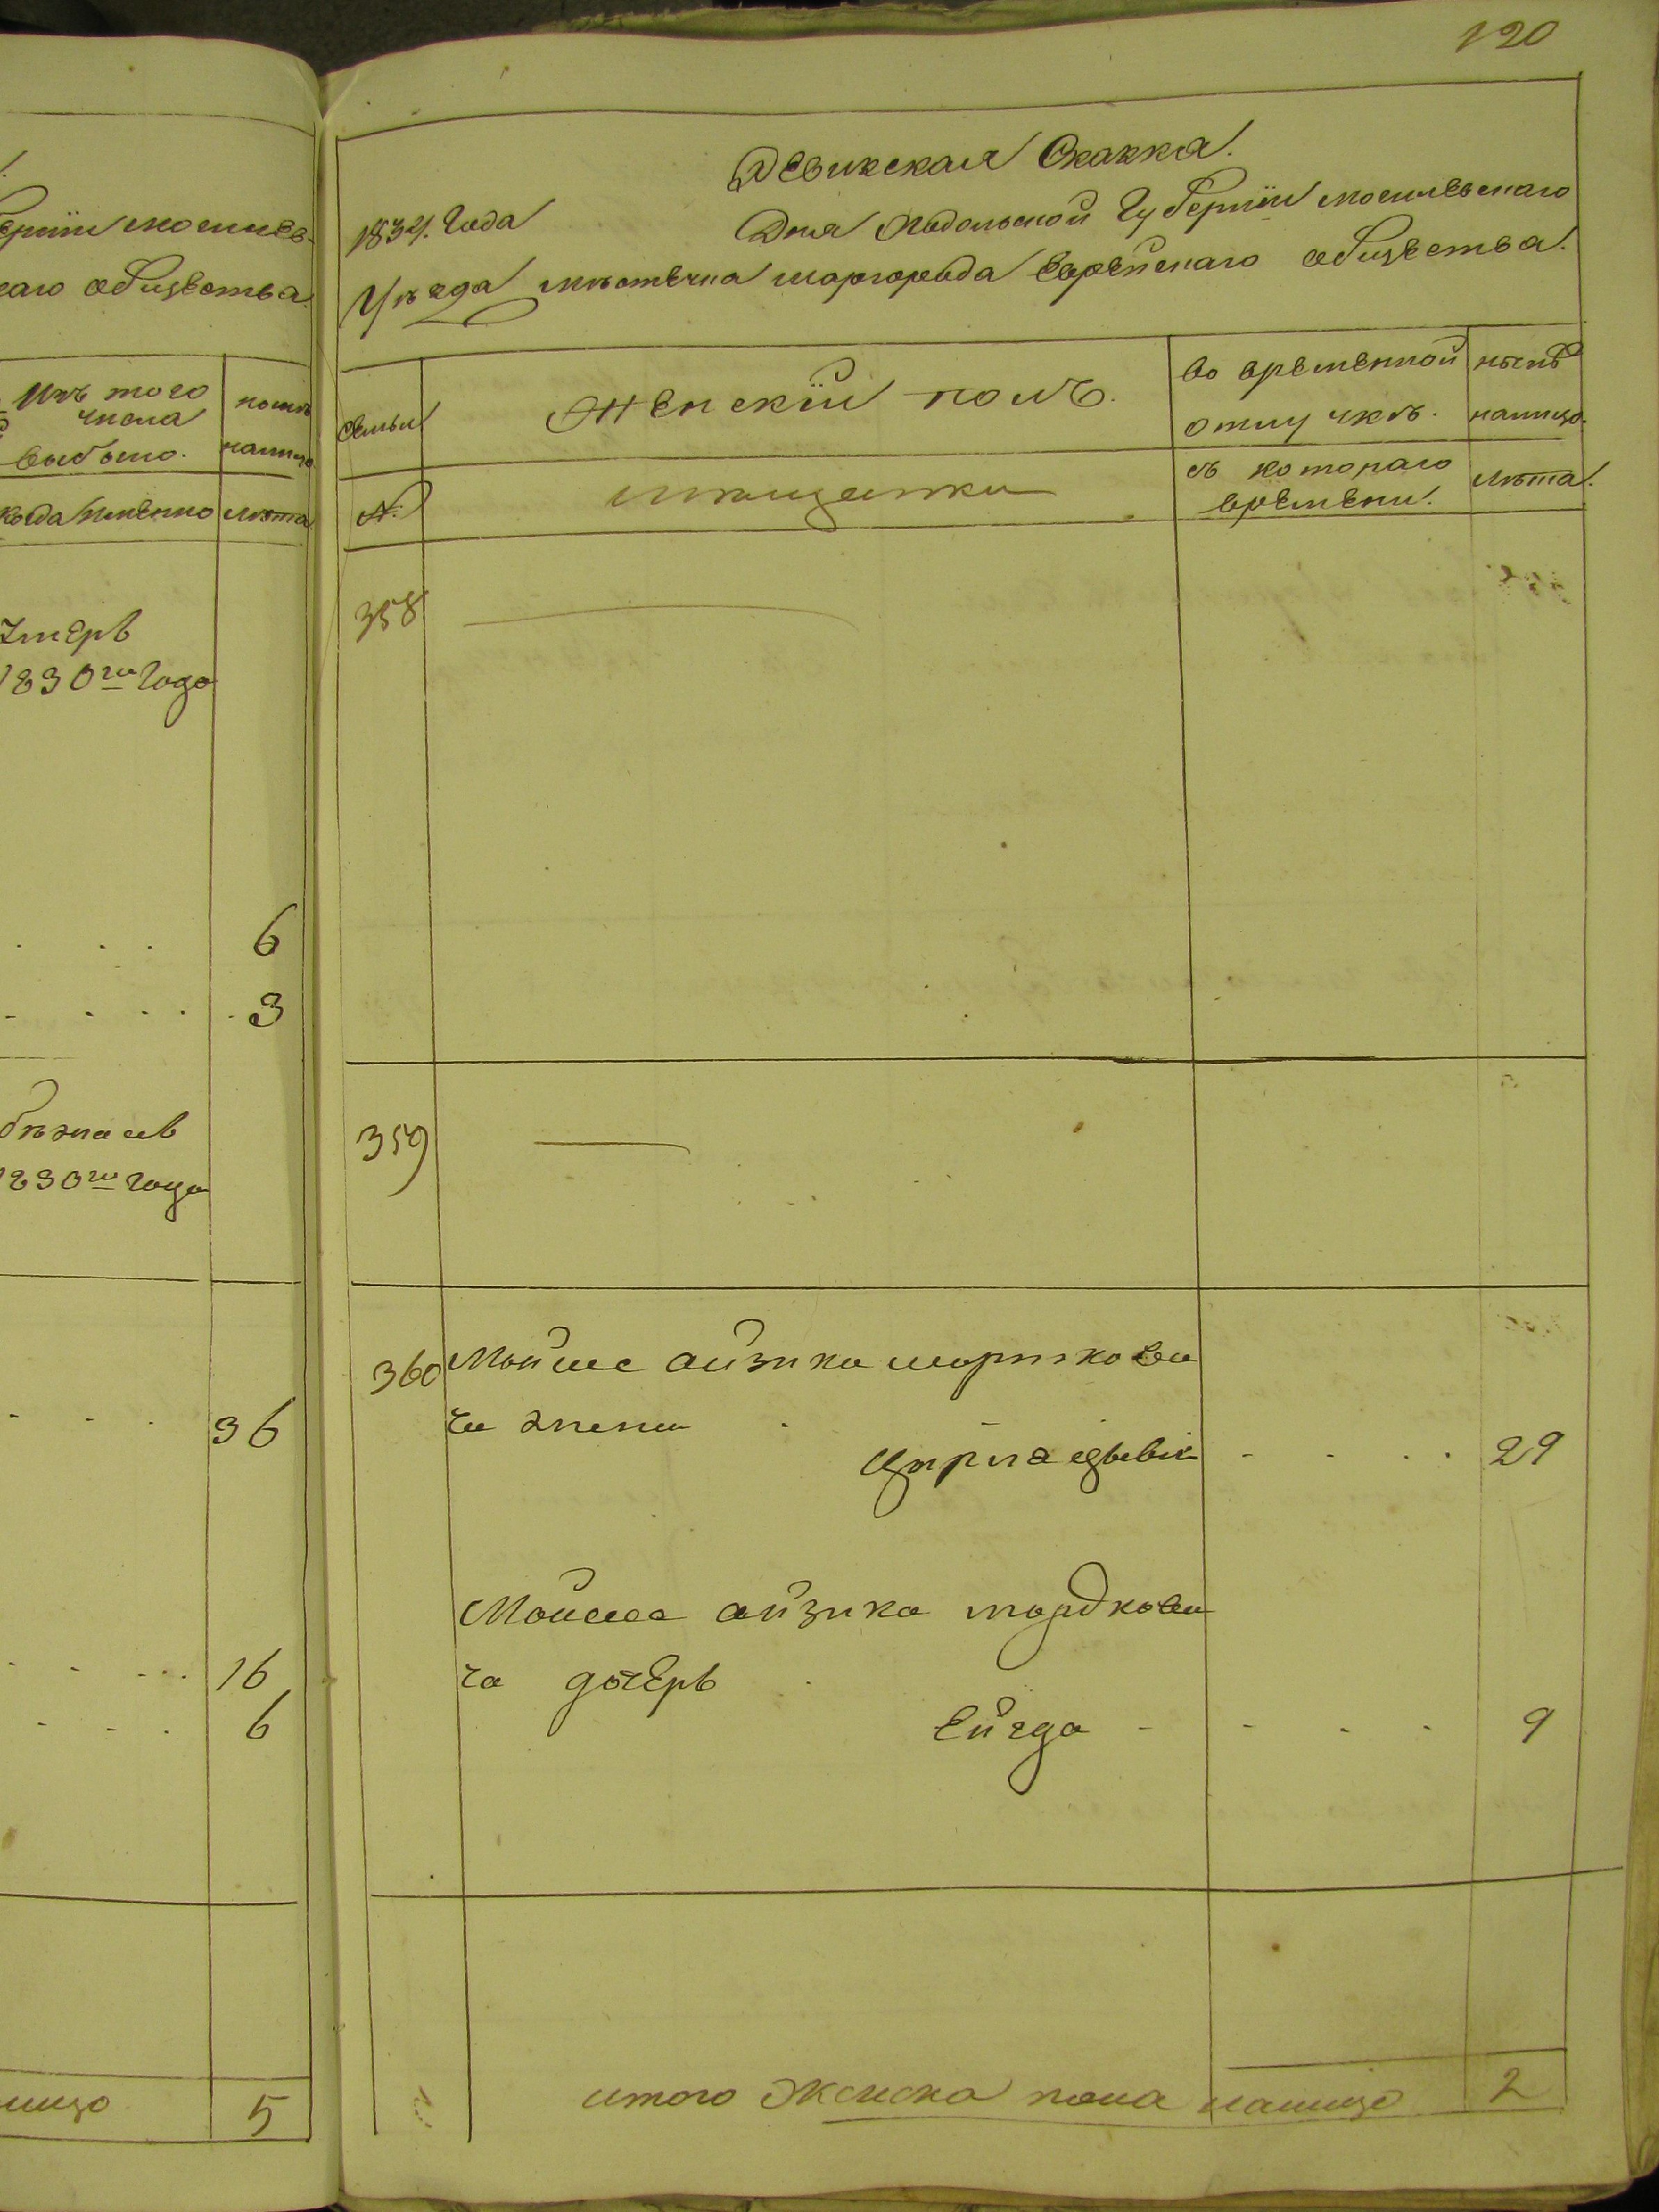 120
ерніи могилев-
каго общества
изъ того
числа
выбыло.
нынѣ
налицо
когда именно
лѣта
умеръ
1830го года
6
3
бѣжалъ
1830го года
36
16
6
лицо
5
Ревижская Скаска.
1834. Года
Дня Подольской Губерніи могилевскаго
Уѣзда мѣстечка шаргорода Еврейскаго общества.
Семьи
Женскій полъ.
во временной
отлучкѣ.
нынѣ
налицо.
№
мѣщанки
съ котораго
времени.
лѣта.
358
359
360
Мойше айзика морткови
ча жена
29
Мойше айзика мордкови
ча дочерь
Ейгда
9
итого женска пола налицо 2